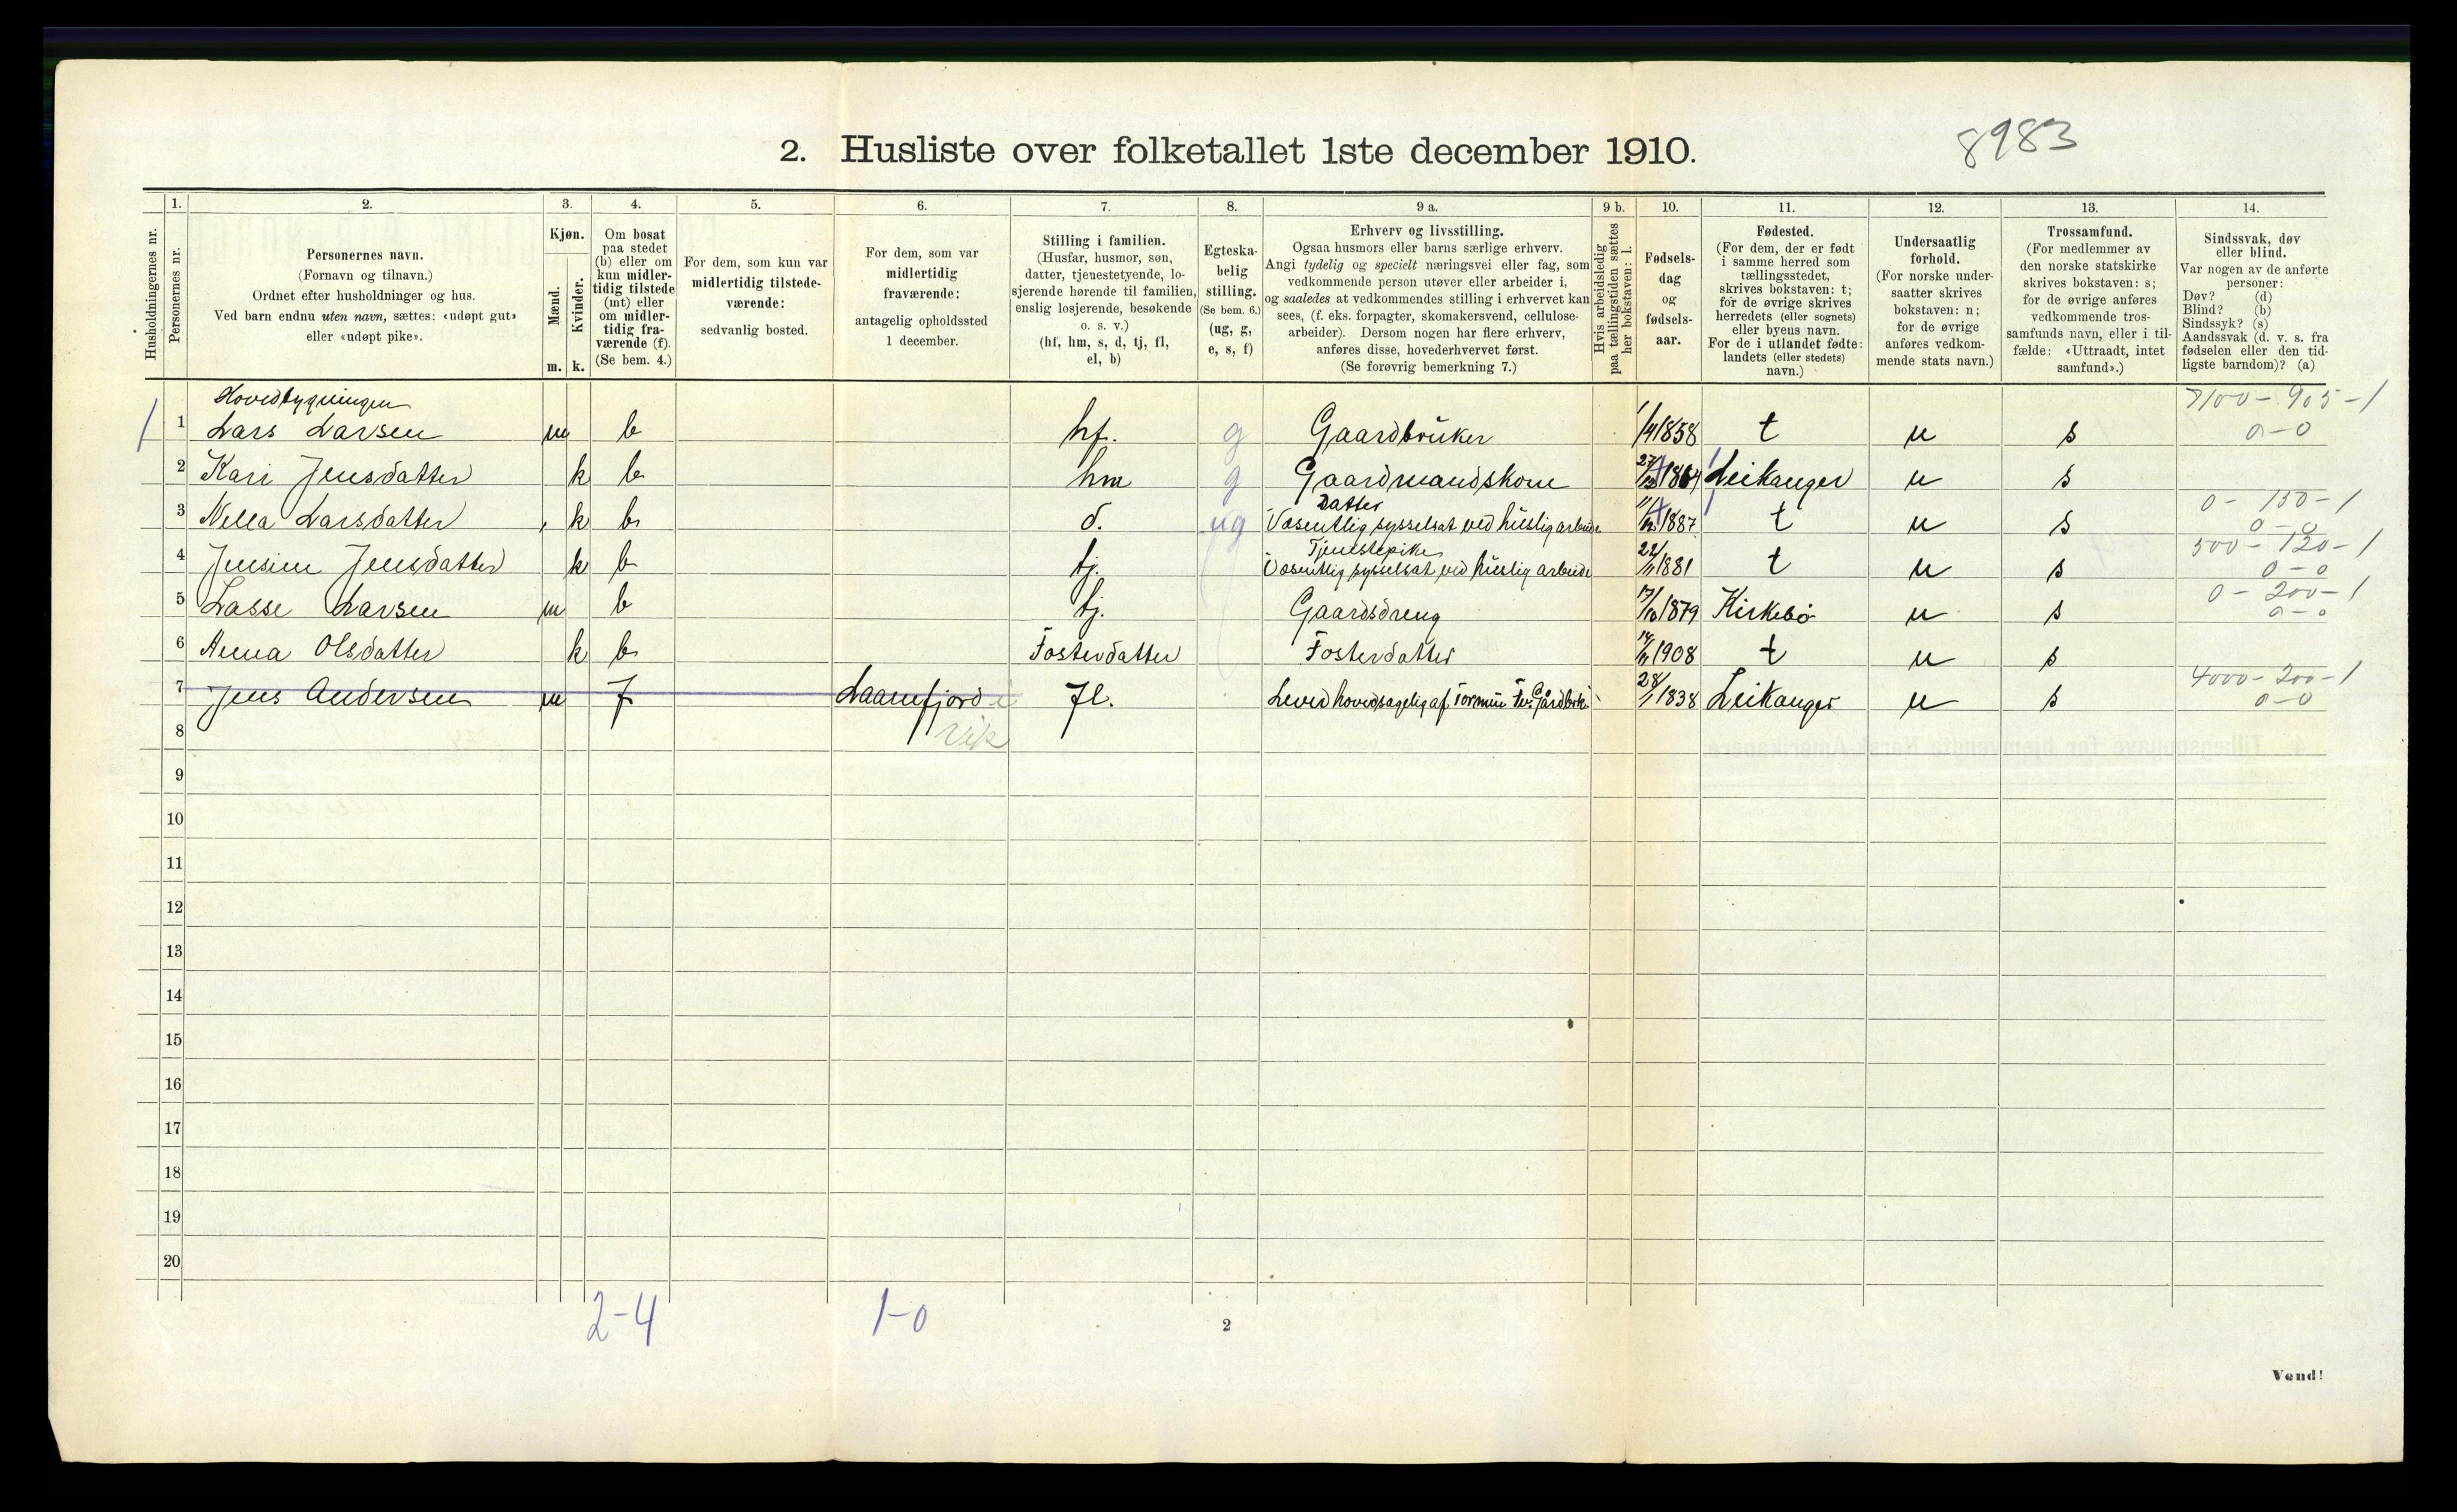 2. Husliste over folketallet 1ste december 1910.
8983
Husholdningernes nr.
1.
Personernes nr.
2.
Personernes navn.
(Fornavn og tilnavn.)
Ordnet efter husholdninger og hus.
Ved barn endnu uten navn, sættes: «udøpt gut»
eller «udøpt pike».
3.
Kjøn.
Mænd.
Kvinder.
m. k.
4.
Om bosat
paa stedet
(b) eller om
kun midler-
tidig tilstede
(mt) eller
om midler-
tidig fra-
værende (f).
(Se bem. 4.)
5.
For dem, som kun var
midlertidig tilstede-
værende:
sedvanlig bosted.
6.
For dem, som var
midlertidig
fraværende:
antagelig opholdssted
1 december.
7.
Stilling i familien.
(Husfar, husmor, søn,
datter, tjenestetyende, lo-
sjerende hørende til familien,
enslig losjerende, besøkende
o. s. v.)
(hf, hm, s, d, tj, fl,
el, b)
8.
Egteska-
belig
stilling.
(Se bem. 6.)
(ug, g,
e, s, f)
9 a.
Erhverv og livsstilling.
Ogsaa husmors eller barns særlige erhverv.
Angi tydelig og specielt næringsvei eller fag, som
vedkommende person utøver eller arbeider i,
og saaledes at vedkommendes stilling i erhvervet kan
sees, (f. eks. forpagter, skomakersvend, cellulose-
arbeider). Dersom nogen har flere erhverv,
anføres disse, hovederhvervet først.
(Se forøvrig bemerkning 7.)
9 b.
Hvis arbeidsledig
paa tællingstiden sættes
her bokstaven: l.
10.
Fødsels-
dag
og
fødsels-
aar.
11.
Fødested.
(For dem, der er født
i samme herred som
tællingsstedet,
skrives bokstaven: t;
for de øvrige skrives
herredets (eller sognets)
eller byens navn.
For de i utlandet fødte:
landets (eller stedets)
navn.)
12.
Undersaatlig
forhold.
(For norske under-
saatter skrives
bokstaven: n;
for de øvrige
anføres vedkom-
mende stats navn.)
13.
Trossamfund.
(For medlemmer av
den norske statskirke
skrives bokstaven: s;
for de øvrige anføres
vedkommende tros-
samfunds navn, eller i til-
fælde: «Uttraadt, intet
samfund».)
14.
Sindssvak, døv
eller blind.
Var nogen av de anførte
personer:
Døv? (d)
Blind? (b)
Sindssyk? (s)
Aandssvak (d. v. s. fra
fødselen eller den tid-
ligste barndom)? (a)
Hovedbygningen 7100 - 905 - 1
1 1 Lars Larsen m b hf. g Gaardbruker 1/4 1858 t n s 0-0
2 Kari Jensdatter k b hm g Gaardmandskone Leikanger n s
Datter 0 - 150 - 1
3 Nella Larsdatter k b d. ug Væsentlig sysselsat ved huslig arbeide 1887 t n s 0-0
Tjenestepike 500 - 120 - 1
4 Jensine Jensdatter k b tj. Væsentlig sysselsat ved huslig arbeide 22/11 1881 t n s 0-0
0 - 200 - 1
5 Lasse Larsen m b tj. Gaardsdreng 17/10 1879 Kirkebø n s 0-0
6 Anna Olsdatter k b Fosterdatter Fosterdatter 14/11 1908 t n s
4000 - 200 - 1
7 Jens Andersen m f Laanefjord fl. Lever hovedsagelig af Formue Gårdbrk. 28/1 1838 Leikanger n s 0-0
8 Vik
9
10
11
12
13
14
15
16
17
18
19
20
2-4 1-0
2
Vend!